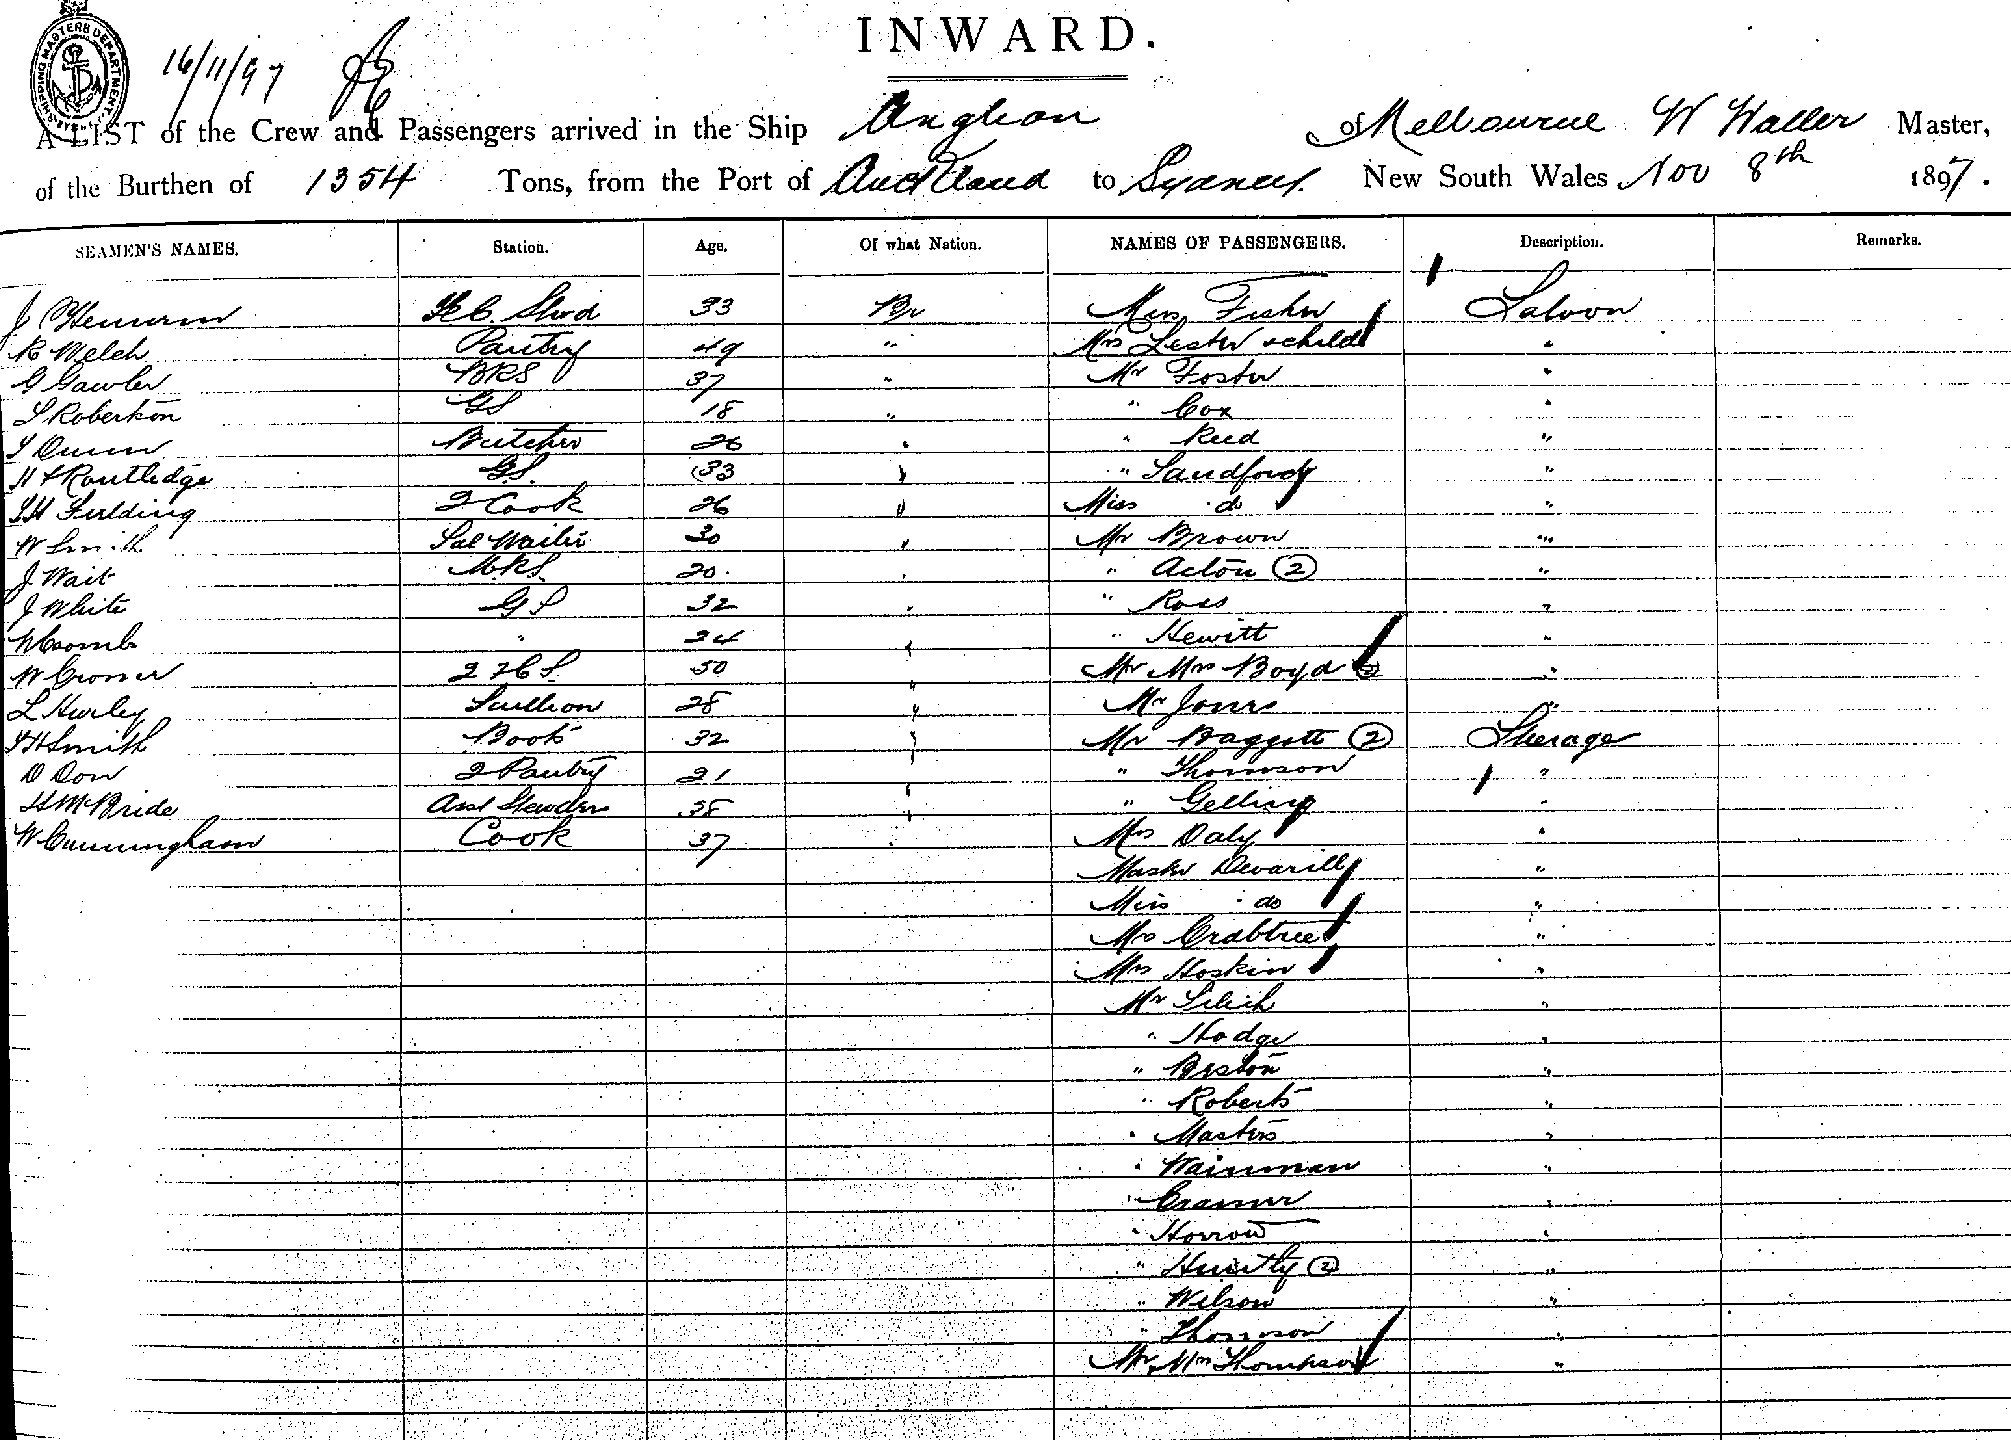 INWARD.
SHIPPING MASTERS DEPARTMENT
16/11/97
A LIST of the Crew and Passengers arrived in the Ship Anglian of Melbourne W Waller Master,
of the Burthen of 1354 Tons, from the Port of Auckland to Sydney. New South Wales Nov 8th 1897.
SEAMEN'S NAMES. Station. Age. Of what Nation. NAMES OF PASSENGERS. Description. Remarks.
J 33 Br Miss Fisher Saloon
R Welch Pantry 49 " Mrs Lester & child "
G Gawler BRS 37 " Mr Foster "
S Robertson GS 18 " " Cox "
Dunn Butcher 26 " " Reed "
Routledge G.S. 33 " " Sandford "
Fielding 2 Cook 26 " Miss do "
W Smith Sal Waiter 30 " Mr Brown "
J Wait M.R.S. 20. " " Acton (2) "
J White GS 32 " " Ross "
W Coomb " 24 " " Hewitt "
W 50 " Mr Mrs Boyd "
L Hurley Scullion 28 " Mr Jones "
Smith Boots 32 " Mr Baggott (2) Steerage
D Don 2 Pantry 21 " Thomson "
H McBride Asst 38 " " Gelling "
W Cunningham Cook 37 Mrs Daly "
Master "
Miss do "
Mrs Crabtree "
Mrs Hoskin "
Mr "
" Hodge "
" Beston "
" Roberts "
" Masters "
" Wainman "
" Cramer "
" "
" (2) "
" Wilson "
" Thomson "
Mr Mrs Thompson "